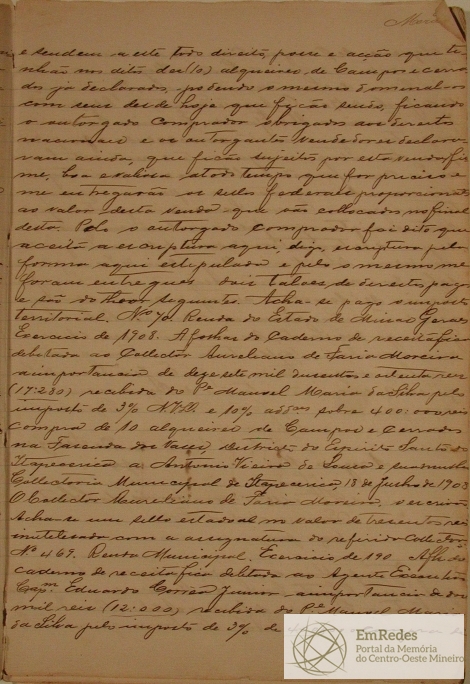 e sendem a este todo direito, posse e acção que ti
nhão nos ditos dez (10) alqueires de Campos e cerra
dos já declarados, podendo o mesmo dominal-os
como seus desde hoje que ficão sendo, ficando
o outorgado Comprador obrigado aos direitos
e os outorgantes Vendedores declara
vam ainda, que ficão sujeitos por esta venda fir
me, boa e valiosa a todo tempo que for preciso e
me entregarão os sellos federaes proporcionaes
ao valor desta venda que vão collocados no final
desta. Pelo o outorgado comprador foi dito que
aceita a escriptura aqui, digo, escriptura pela
forma aqui estipulada e pelo mesmo me
foram entregues dois talões de direitos pagos
e são do theor seguinte. Acha-se pago o imposto
territorial. Nº 70. Renda do Estado de Minas Geraes
Exercicio de 1908. A folhas do Caderno de receita fica
debitada ao Collector Aureliano de Faria Moreira
a importancia de dezesete mil duzentos e oitenta reis
(17:280) recebida do Pe Manoel Maria da Silva pelo
imposto de 3% e 10% sobre 400:000 reis
compra de 10 alqueires de Campos e Cerrados
na Fazenda das Districto do Espirito Santo do
Itapecerica a Antonio Vieira de Souza e sua mulher
Collectoria Municipal de Itapecerica, 18 de Junho de 1908
O Collector Aureliano de Faria Moreira, o escrivão
Acha-se um sello estadoal no valor de trezentos reis
inutilisado com a assignatura do referido Collector
Nº 469. Renda Municipal. Exercicio de 190 A fls do
caderno de receita fica debitada ao Agente Executivo
Capm Eduardo Corrêa Junior a importancia de doze
mil reis (12:000) recebida do Pe Manoel Maria
da Silva pelo imposto de 3% de
EmRedes
Portal da Memória
do Centro-Oeste Mineiro